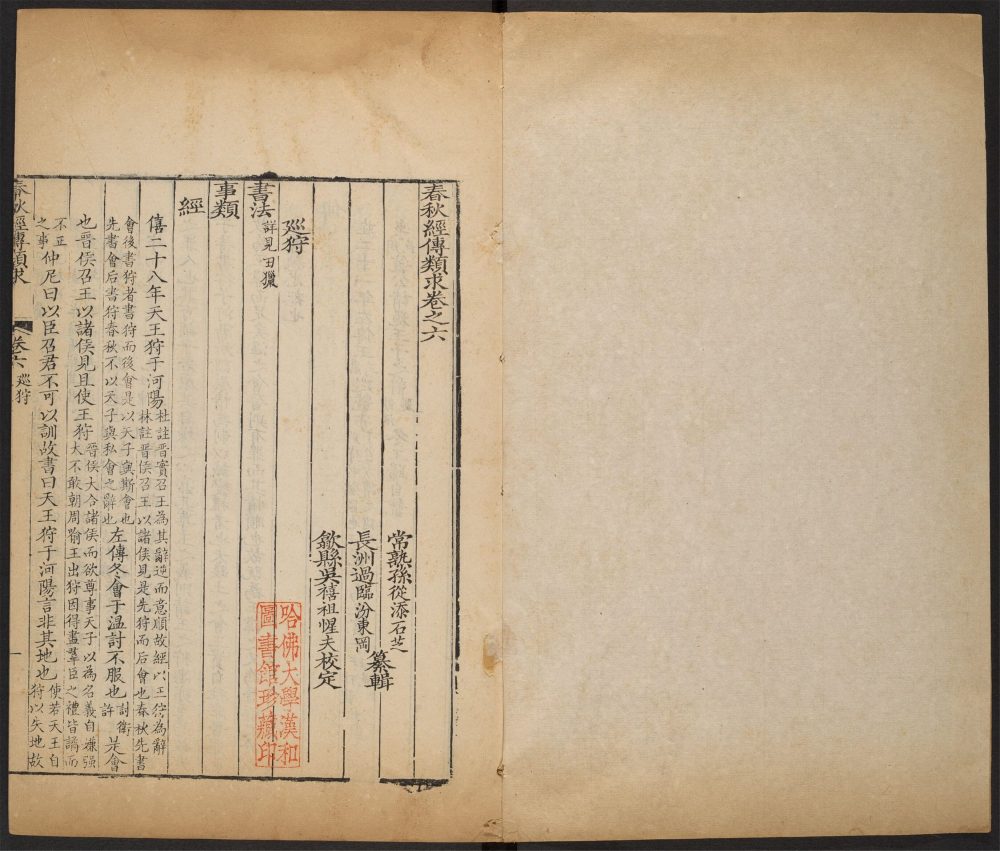 春秋經傳類求卷之六
常熟孫從添石芝
長洲過臨汾東岡
纂輯
歙縣吳禧祖惺夫校定
廵狩
書法詳見田獵
事類
經
僖二十八年天王狩于河陽杜註晋實召王為其辭逆而意順故經以王狩為辭
林註晋侯召王以諸侯見是先狩而后會也春秋先書
會後書狩者書狩而後會是以天子與斯會也
先書會后書狩春秋不以天子與私會之辭也左傳冬會于溫討不服也討衛許是會
也晋侯召王以諸侯見且使王狩晋侯大合諸侯而欲尊事天子以為名義自嫌强
大不敢朝周喻王出狩因得盡羣臣之禮皆譎而
不正
之事仲尼曰以臣召君不可以訓故書曰天王狩于河陽言非其地也使若天王自
狩以失地故
春秋經傳類求 卷六 廵狩 一
哈佛大學漢和
圖書館珍藏印